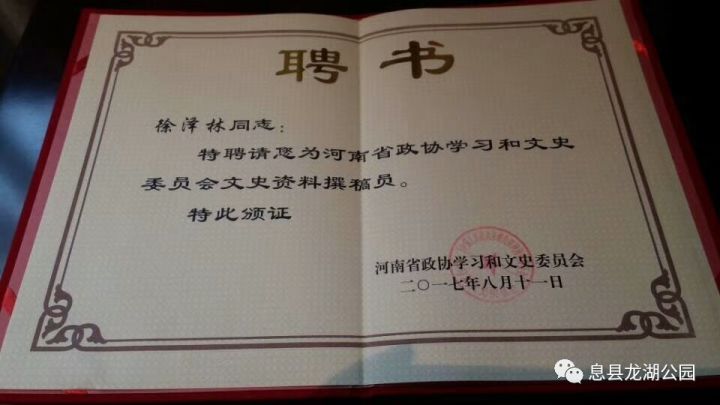 聘书
徐泽林同志：
特聘请您为河南省政协学习和文史
委员会文史资料撰稿员。
特此颁证
河南省政协学习和文史委员会
二〇一七年八月十一日
息县龙湖公园